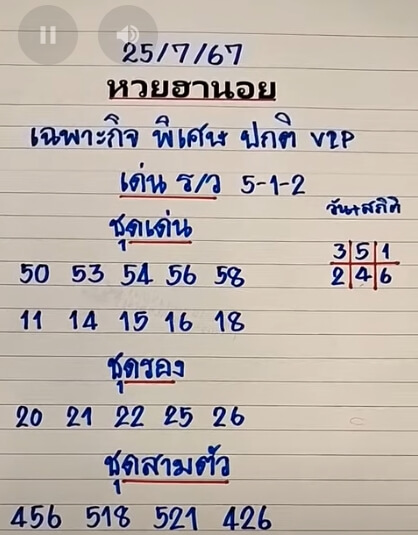 25/7/67
หวยฮานอย
เฉพาะกิจ พิเศษ ปกติ VIP
เด่น ร/ว 5-1-2
วัน+สถิติ
ชุดเด่น
3 5 1
50 53 54 56 58
2 4 6
11 14 15 16 18
ชุดรอง
20 21 22 25 26
ชุดสามตัว
456 518 521 426